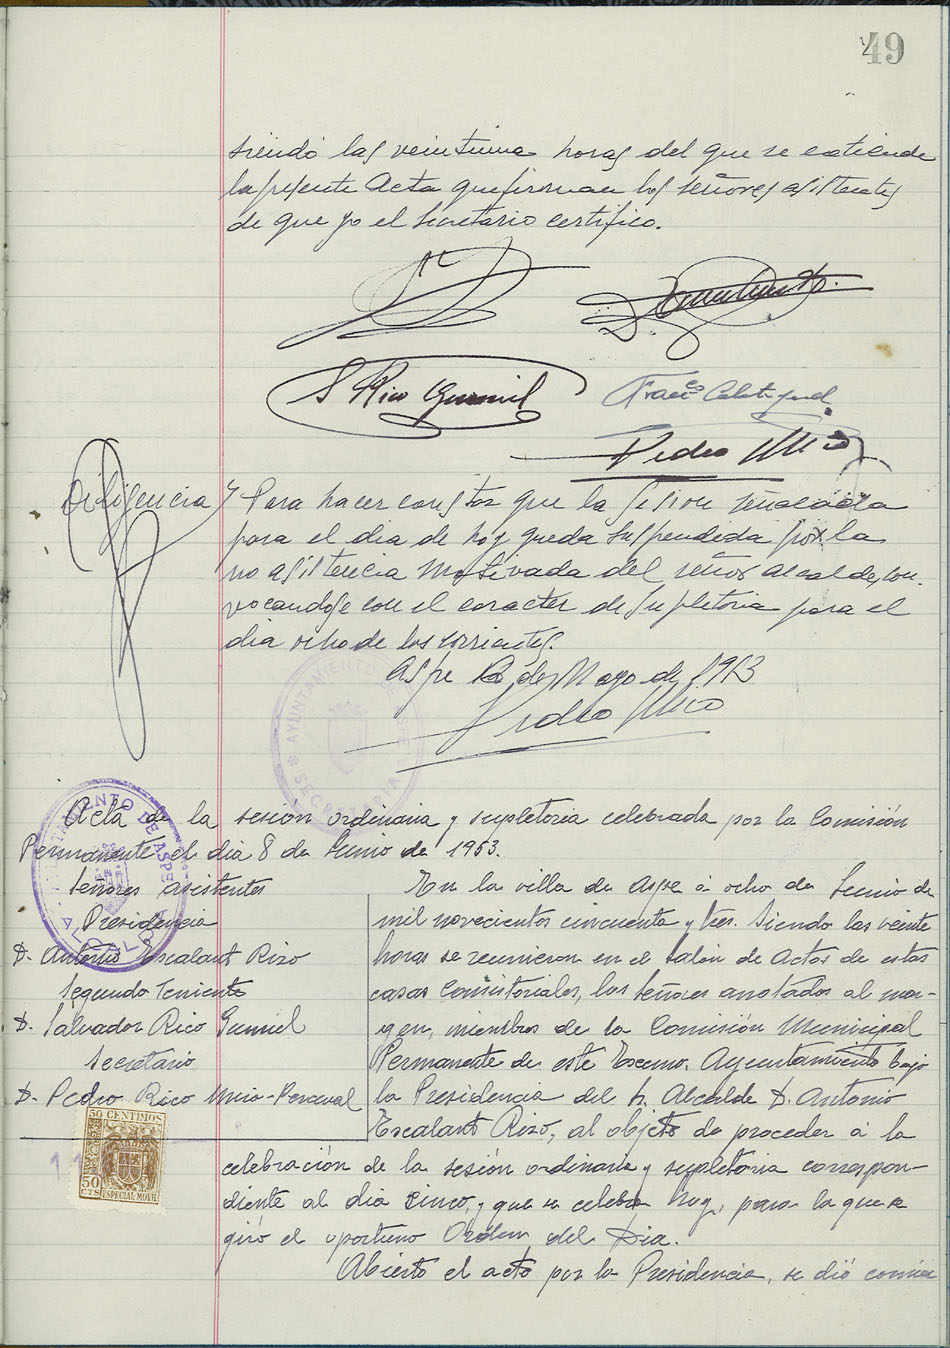 49
siendo las veintiuna horas del que se extiende
la presente Acta que firman los señores asistentes
de que yo el Secretario certifico.
S Rico Gumiel
Franco Calatayud
Pedro Mico
Diligencia Para hacer constar que la sesion señalada
para el dia de hoy queda suspendida por la
no asistencia motivada del señor alcalde, con-
vocandose con el caracter de supletoria para el
dia ocho de los corrientes.
Aspe de Mayo de 1953
Pedro Mico
AYUNTAMIENTO DE ASPE
SECRETARIA
AYUNTAMIENTO DE ASPE
ALCALDIA
Acta de la sesión ordinaria y supletoria celebrada por la Comisión
Permanente el dia 8 de Junio de 1953.
Señores asistentes
Presidencia
D. Antonio Escalant Rizo
Segundo Teniente
D. Salvador Rico Gumiel
Secretario
D. Pedro Rico Mira-Perceval
50 CENTIMOS
50 CTS
ESPECIAL MOVIL
En la villa de Aspe a ocho de Junio de
mil novecientos cincuenta y tres. Siendo las veinte
horas se reunieron en el Salón de Actos de estas
casas Consistoriales, los señores anotados al mar-
gen, miembros de la Comisión Municipal
Permanente de este Excmo. Ayuntamiento bajo
la Presidencia del Sr. Alcalde D. Antonio
Escalant Rizo, al objeto de proceder a la
celebración de la sesión ordinaria y supletoria correspon-
diente al dia cinco, y que se celebra hoy, para la que se
giró el oportuno Orden del Dia.
Abierto el acto por la Presidencia, se dió comien